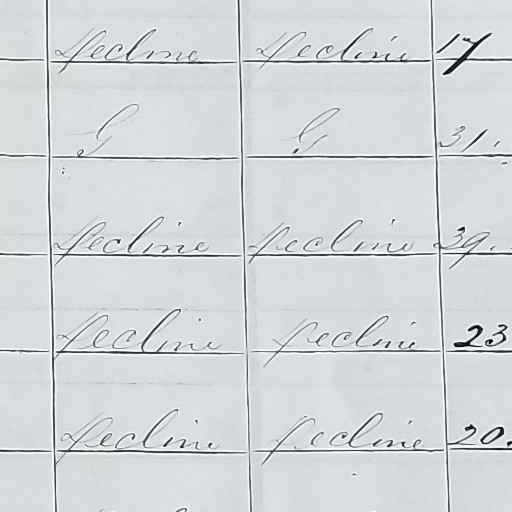 Decline Decline 17
G G 31.
Decline Decline 39.
Decline Decline 23
Decline Decline 20.